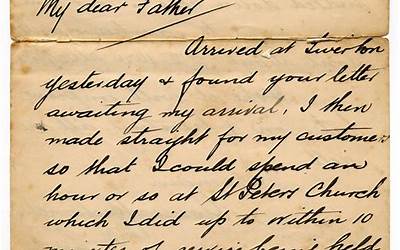 My dear Father
Arrived at Tiverton
yesterday & found your letter
awaiting my arrival, I then
made straight for my customer
so that I could spend an
hour or so at St Peters Church
which I did up to within 10
minutes of service being held